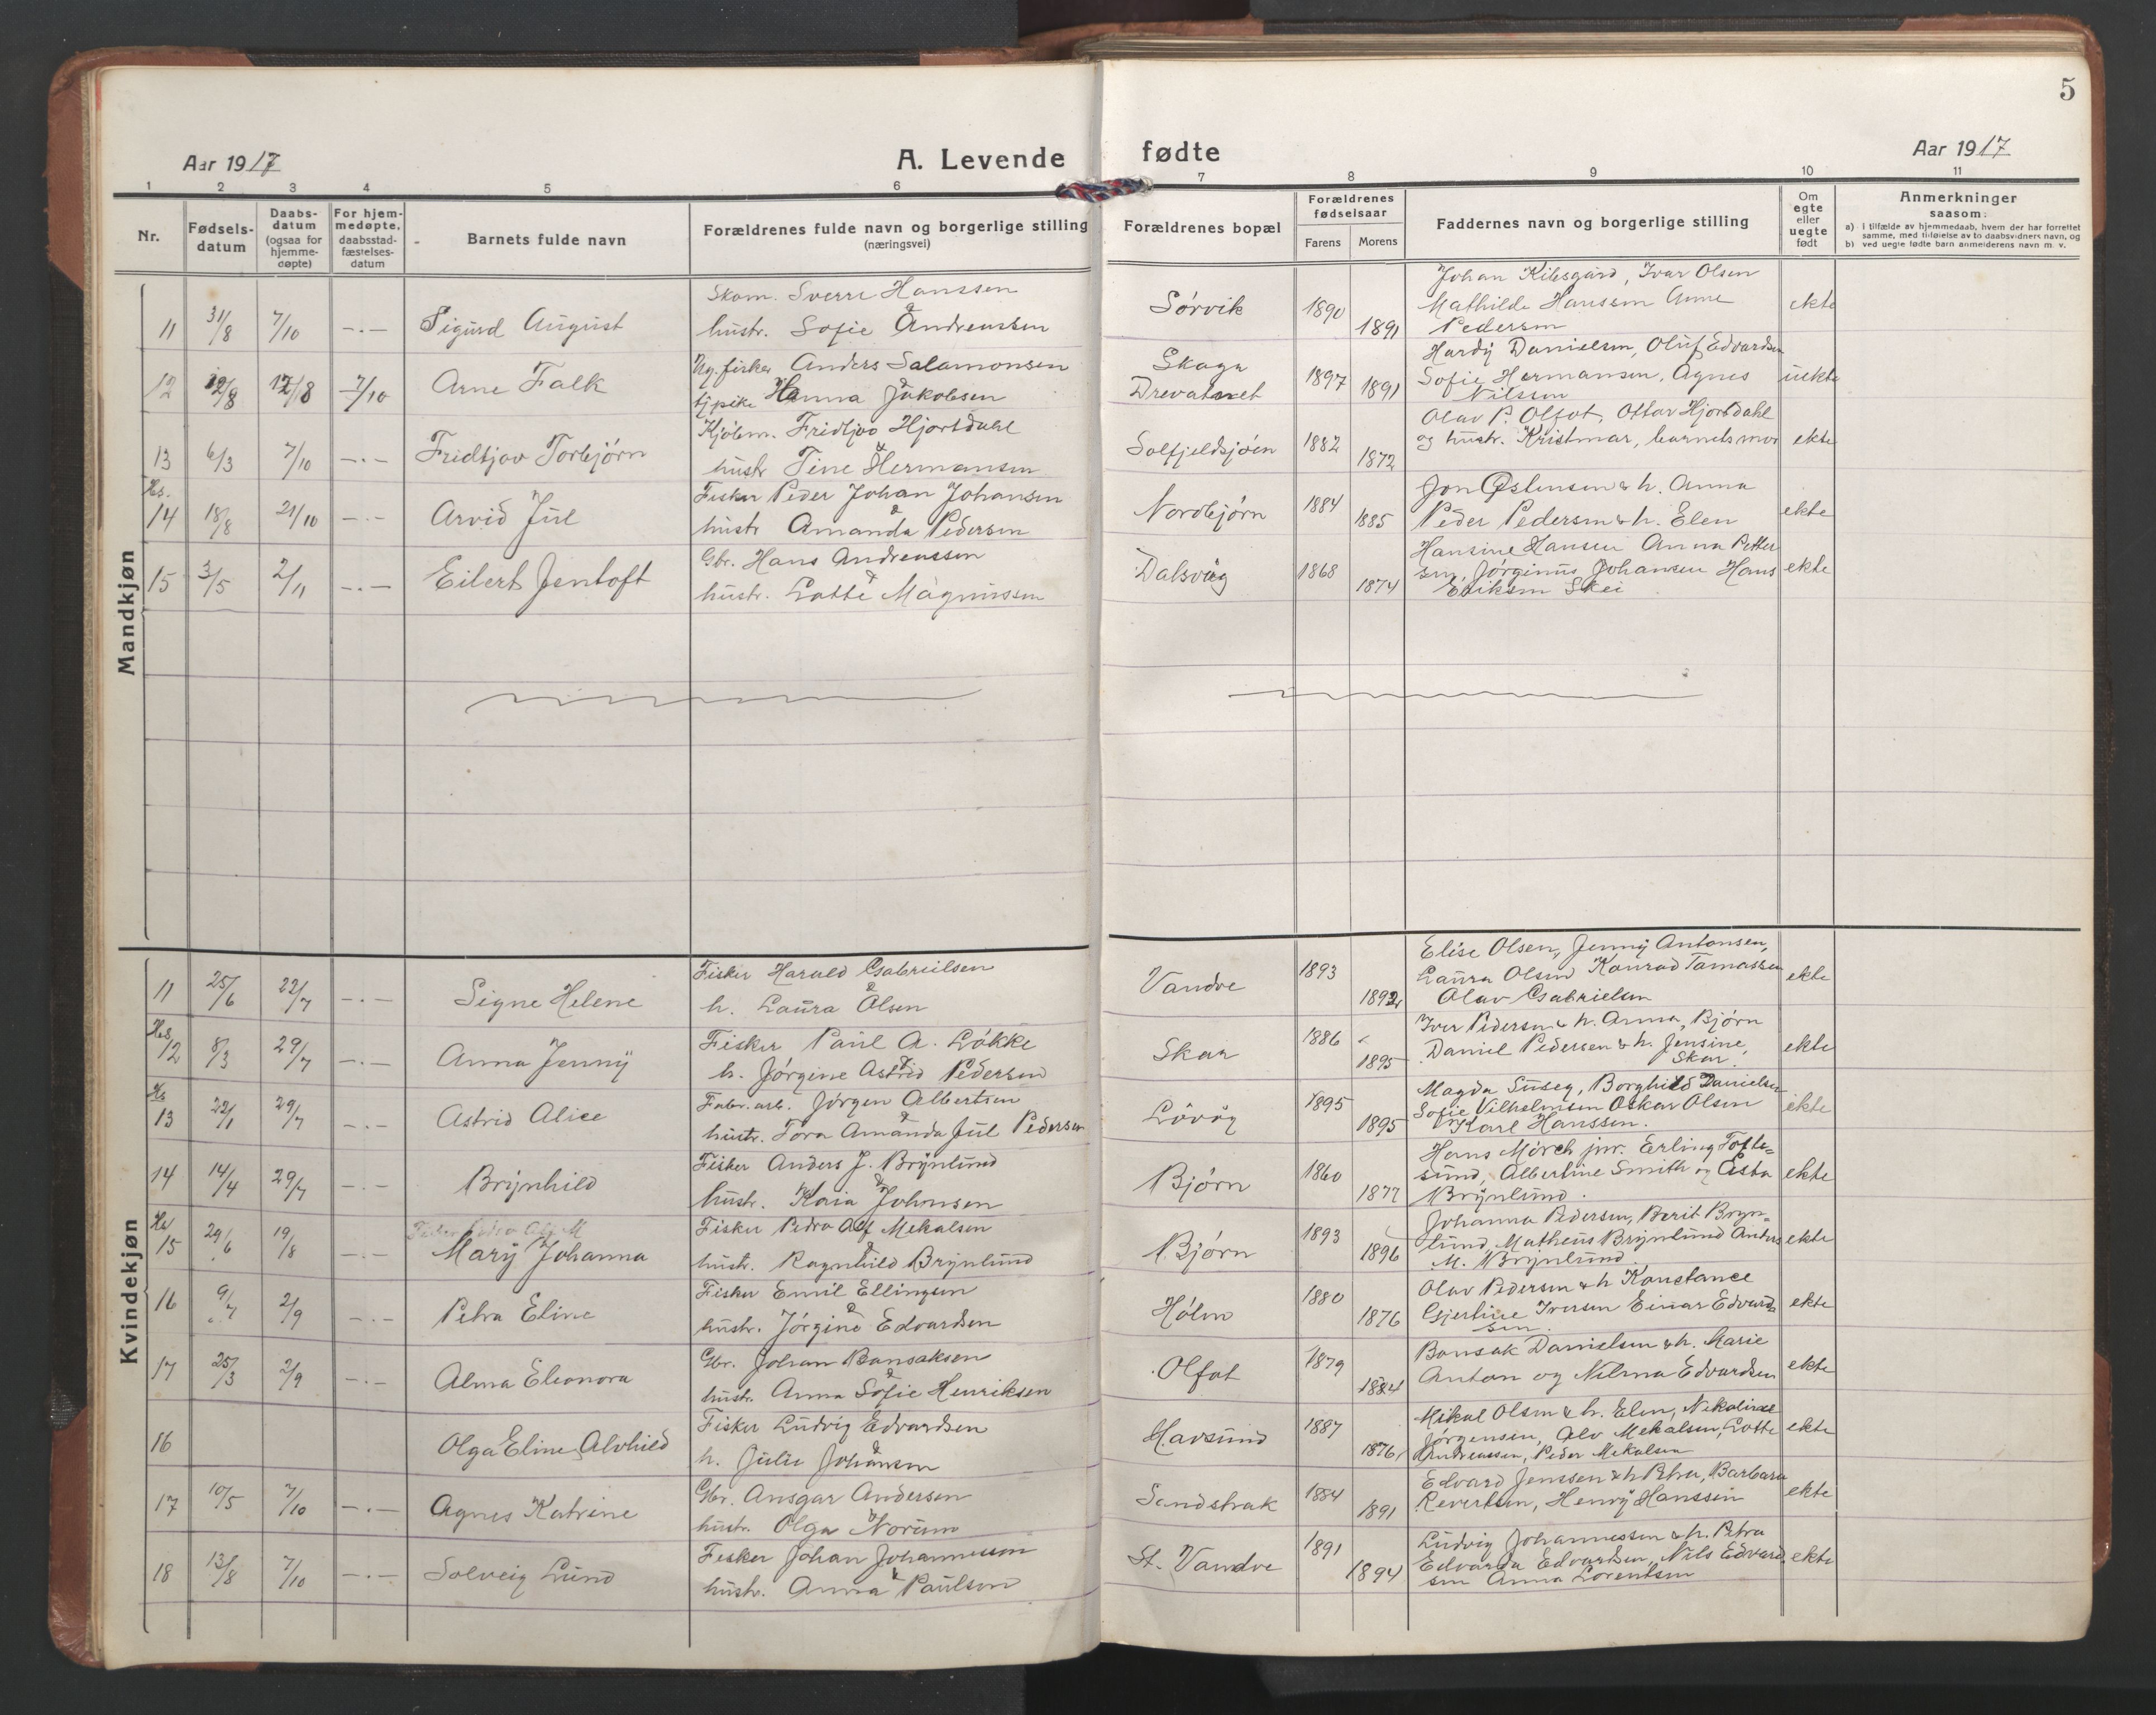 5
Aar 1917
A. Levende fødte
Aar 1917
1 2 3 4 5 6 7 8 9 10 11
Nr.
Fødsels-
datum
Daabs-
datum
(ogsaa for
hjemme-
døpte)
For hjem-
medøpte,
daabsstad-
fæstelses-
datum
Barnets fulde navn
Forældrenes fulde navn og borgerlige stilling
(næringsvei)
Forældrenes bopæl
Forældrenes
fødselsaar
Farens Morens
Faddernes navn og borgerlige stilling
Om
egte
eller
uegte
født
Anmerkninger
saasom:
a) i tilfælde av hjemmedaab, hvem der har forrettet
samme, med tilføielse av to daabsvidners navn, og
b) ved uegte fødte barn anmelderens navn m. v.
Mandkjøn
11 31/8 7/10 -.- Sigurd August
Skom. Sverre Hanssen
&
hustr. Sofie Andreassen
Sørvik 1890 1891
Johan Kilesgård, Ivar Olsen
Mathilde Hanssen Anne
Pedersen
ekte
12 12/8 12/8 7/10 Arne Falk
Ug. fisker Anders Salamonsen
&
tj pike Hanna Jakobsen
Skaga
Drevatnet 1897 1891
Hardy Danielsen, Oluf Edvardsen
Sofie Hermansen, Agnes
Nilssen
uekte
13 6/3 7/10 -.- Fridtjov Torbjørn
Kjøbm. Fridtjov Hjortdahl
&
hustr Tine Hermansen
Solfjeldsjøen 1882 1872
Olav P. Olfot, Ottar Hjortdahl
og hustr. Kristmar, barnets mor
ekte
Hs.
14 18/8 21/10 -.- Arvid Jul
Fisker Peder Johan Johansen
&
hustr Amanda Pedersen
Nordbjørn 1884 1885
Jon Østensen & h. Anna
Peder Pedersen & h. Elen
ekte
15 3/5 2/11 -.- Eilert Jentoft
Gbr. Hans Andreassen
&
hustr. Lotte Magnussen
Dalsvåg 1868 1874
Hansine Hansen Anna Petter
sen, Jørginus Johansen Hans
Eriksen Skei
ekte
Kvindekjøn
11 25/6 22/7 -.- Signe Helene
Fisker Harald Gabrielsen
&
h. Laura Olsen
Vandve 1893 1892
Elise Olsen, Jenny Antonsen,
Laura Olsen Konrad Tomassen
Olav Gabrielsen
ekte
Hs
12 8/3 29/7 -.- Anna Jenny
Fisker Paul A. Løkke
&
h. Jørgine Astrid Pedersen
Skar 1886 1895
Iver Pedersen & h. Anna, Bjørn
Daniel Pedersen & h. Jensine,
Skar
ekte
Hs
13 22/1 29/7 -.- Astrid Alice
Fabr. arb. Jørgen Albertsen
&
hustr. Tora Amanda Jul Pedersen
Løvåg 1895 1895
Magda Suseg, Borghild Danielsen
Sofie Vilhelmsen Oskar Olsen
Karl Hanssen.
ekte
14 14/4 29/7 -.- Brynhild
Fisker Anders J. Brynlund
&
hustr. Kaia Johnsen
Bjørn 1860 1877
Hans Mørch jnr. Erling Tofte=
sund, Albertine Smith og Asta
Brynlund.
ekte
Hs
15 29/6 19/8 -.- Mary Johanna
Fisker Pedro Alf Mekalsen
&
hustr. Ragnhild Brynlund
Bjørn 1893 1896
Johanna Pedersen, Berit Bryn=
lund Matheus Brynlund Anders
M. Brynlund.
ekte
16 9/7 2/9 -.- Petra Eline
Fisker Emil Ellingsen
&
hustr. Jørgine Edvardsen
Holm 1880 1876
Olav Pedersen & h Konstance
Gjertine Iversen Einar Edvard
sen.
ekte
17 25/3 2/9 -.- Alma Eleonora
Gbr. Johan Bansaksen
&
hustr. Anna Sofie Henriksen
Olfot 1879 1884
Bansak Danielsen & h. Marie
Anton og Nilma Edvardsen
ekte
16 Olga Eline Alvhild
Fisker Ludvig Edvardsen
&
h. Julie Johansen
Havsund 1887 1876
Mikal Olsen & h. Elen, Nekoline
Jørgensen, Alv Mekalsen, Lotte
Andreassen, Peder Mekalsen
ekte
17 10/5 7/10 -.- Agnes Katrine
Gbr. Ansgar Andersen
&
hustr. Olga Norum
Sandstrak 1884 1891
Edvard Jenssen & h Petra, Barbara
Revertsen, Henry Hanssen
ekte
18 13/8 7/10 -.- Solveig Lund
Fisker Johan Johannessen
&
hustr. Anna Paulsen
St. Vandve 1891 1894
Ludvig Johannessen & h. Petra
Edvarda Edvardsen, Nils Edvard
sen Anna Lorentsen
ekte